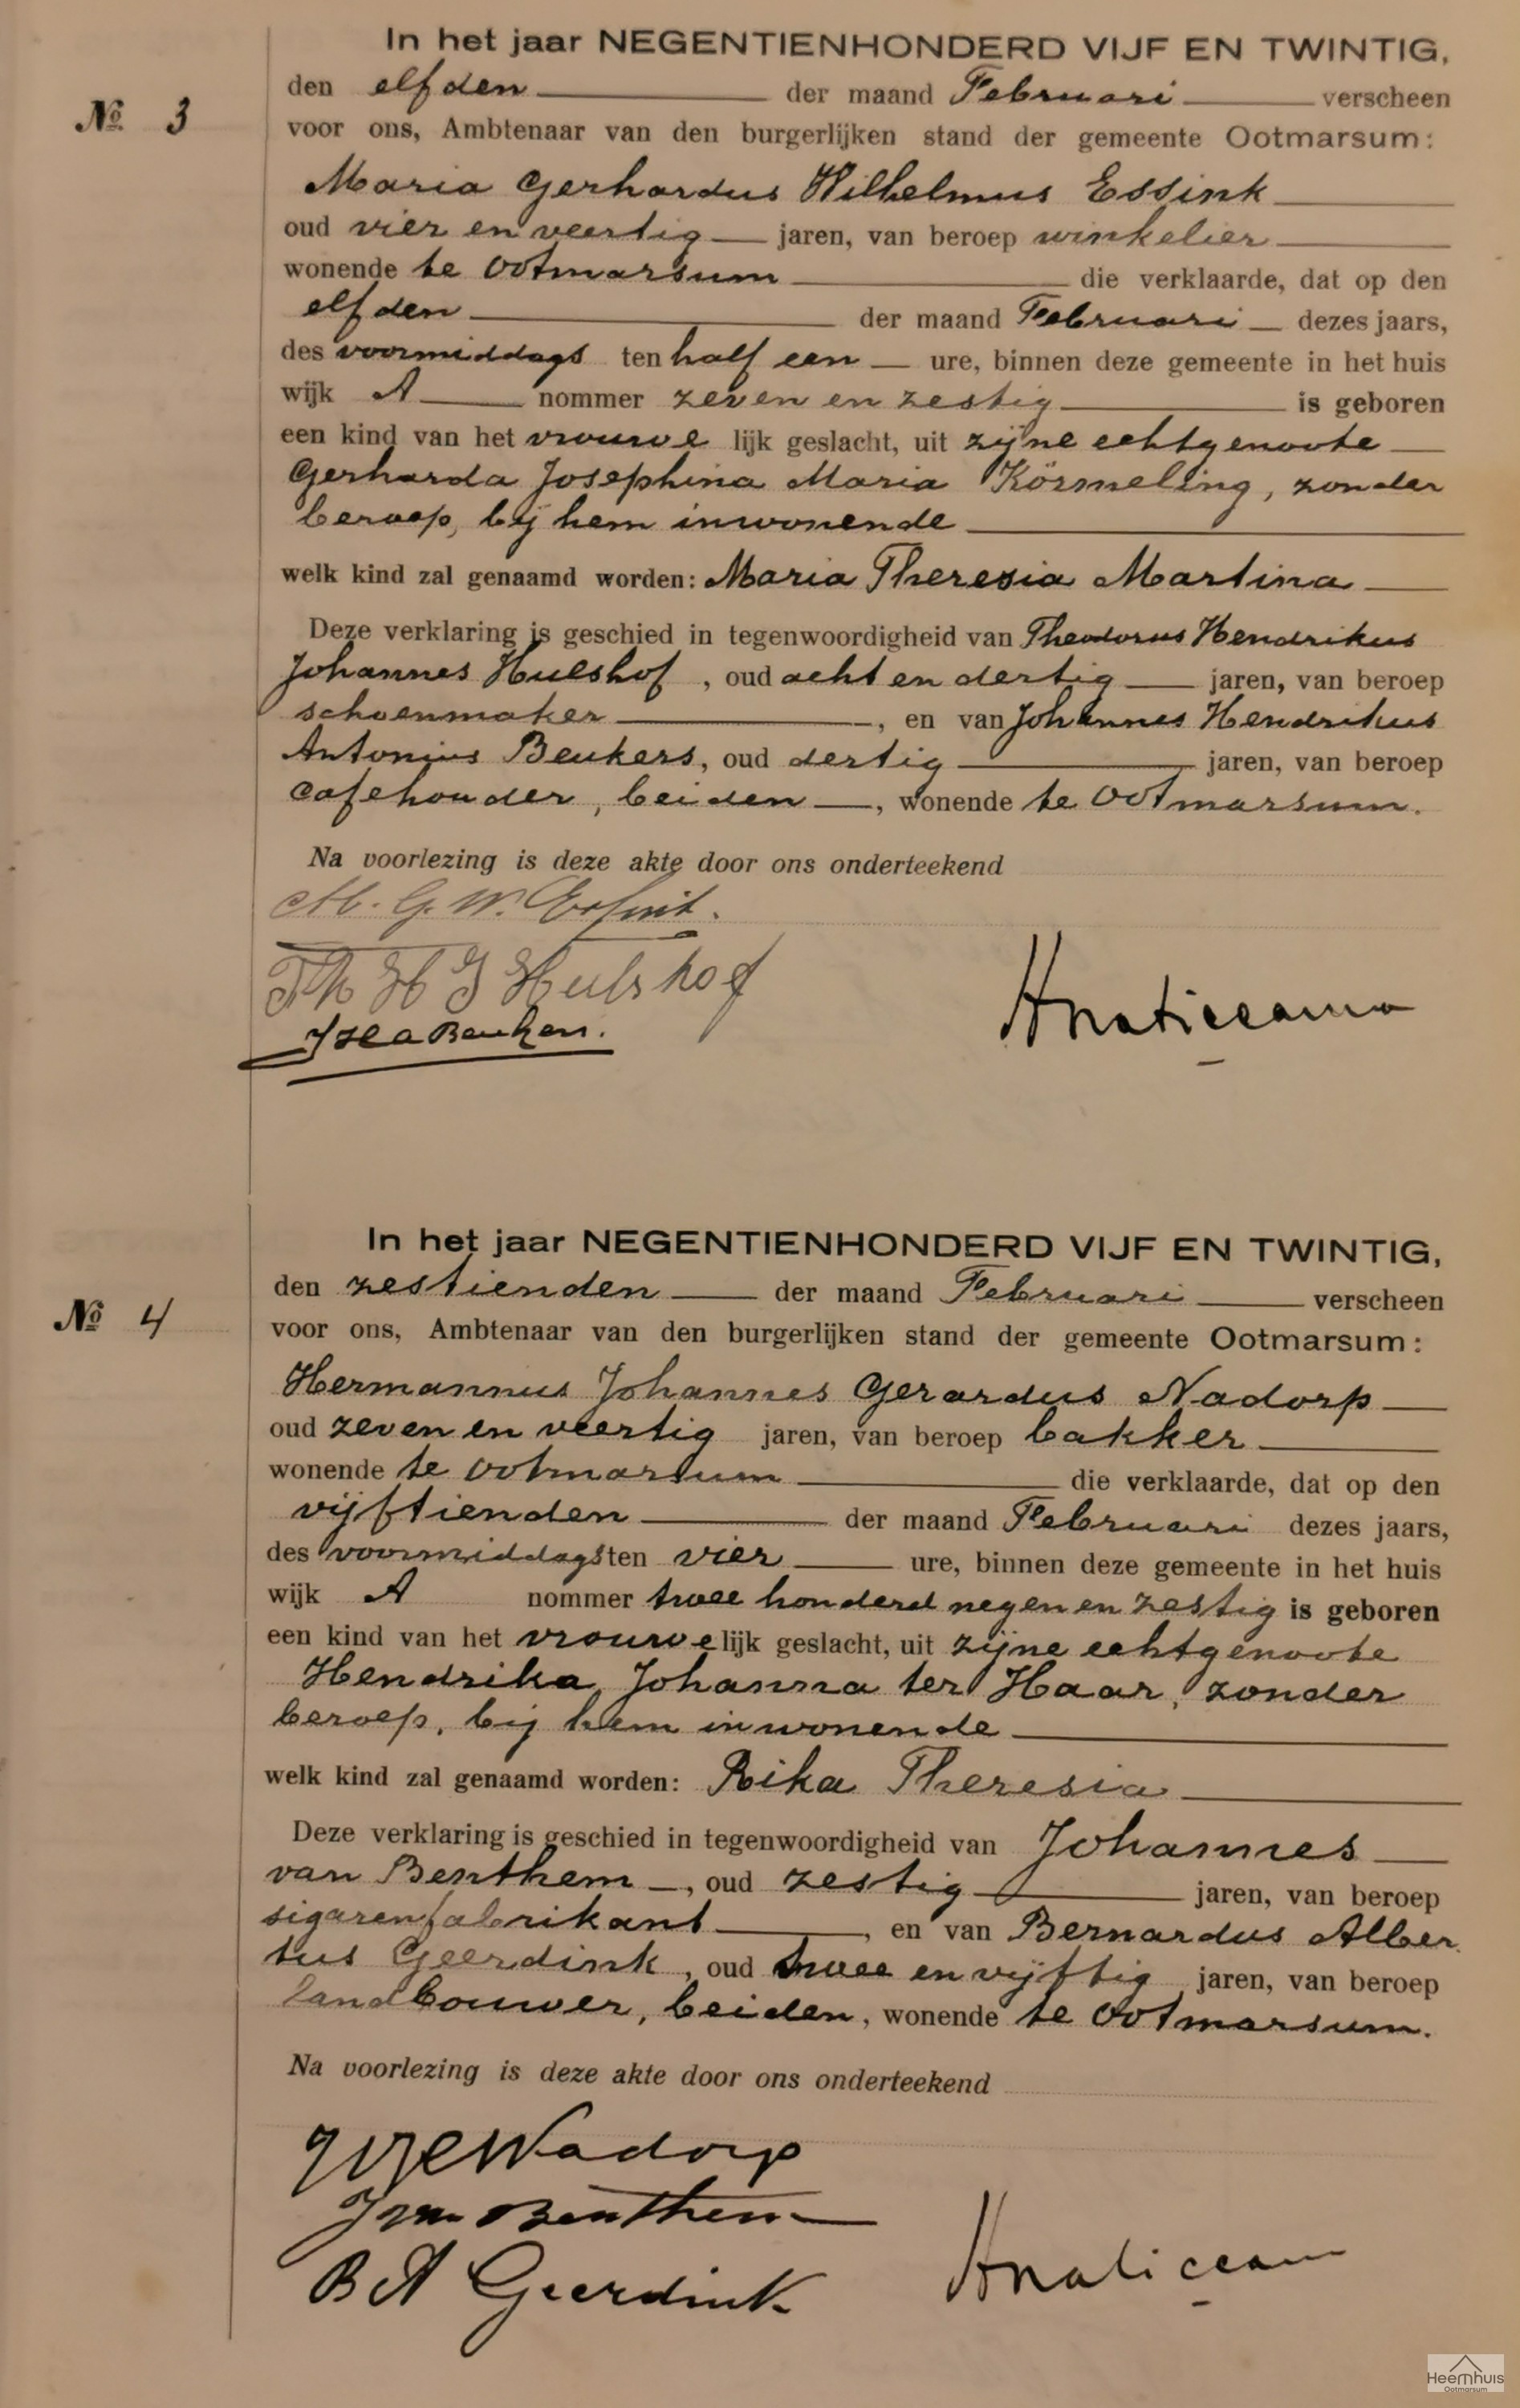 In het jaar NEGENTIENHONDERD VIJF EN TWINTIG,
den elfden der maand Februari verscheen
No 3
voor ons, Ambtenaar van den burgerlijken stand der gemeente Ootmarsum:
Maria Gerhardus Wilhelmus Essink
oud vier en veertig jaren, van beroep winkelier
wonende te Ootmarsum die verklaarde, dat op den
elfden der maand Februari dezes jaars,
des voormiddags ten half een ure, binnen deze gemeente in het huis
wijk A nommer zeven en zestig is geboren
een kind van het vrouwe lijk geslacht, uit zijne echtgenoote
Gerharda Josephina Maria Körmeling, zonder
beroep, bij hem inwonende
welk kind zal genaamd worden: Maria Theresia Martina
Deze verklaring is geschied in tegenwoordigheid van Theodorus Hendrikus
Johannes Hulshof, oud acht en dertig jaren, van beroep
schoenmaker, en van Johannes Hendrikus
Antonius Beukers, oud dertig jaren, van beroep
cafehouder, beiden, wonende te Ootmarsum.
Na voorlezing is deze akte door ons onderteekend
M. G. W. Essink.
Th H J Hulshof
J H A Beukers.
In het jaar NEGENTIENHONDERD VIJF EN TWINTIG,
den zestienden der maand Februari verscheen
No 4
voor ons, Ambtenaar van den burgerlijken stand der gemeente Ootmarsum:
Hermannus Johannes Gerardus Nadorp
oud zeven en veertig jaren, van beroep bakker
wonende te Ootmarsum die verklaarde, dat op den
vijftienden der maand Februari dezes jaars,
des voormiddags ten vier ure, binnen deze gemeente in het huis
wijk A nommer twee honderd negen en zestig is geboren
een kind van het vrouwe lijk geslacht, uit zijne echtgenoote
Hendrika Johanna ter Haar, zonder
beroep, bij hem inwonende
welk kind zal genaamd worden: Rika Theresia
Deze verklaring is geschied in tegenwoordigheid van Johannes
van Benthem, oud zestig jaren, van beroep
sigarenfabrikant, en van Bernardus Alber
tus Geerdink, oud twee en vijftig jaren, van beroep
landbouwer, beiden, wonende te Ootmarsum.
Na voorlezing is deze akte door ons onderteekend
Nadorp
J van Benthem
B A Geerdink
Heemhuis
Ootmarsum